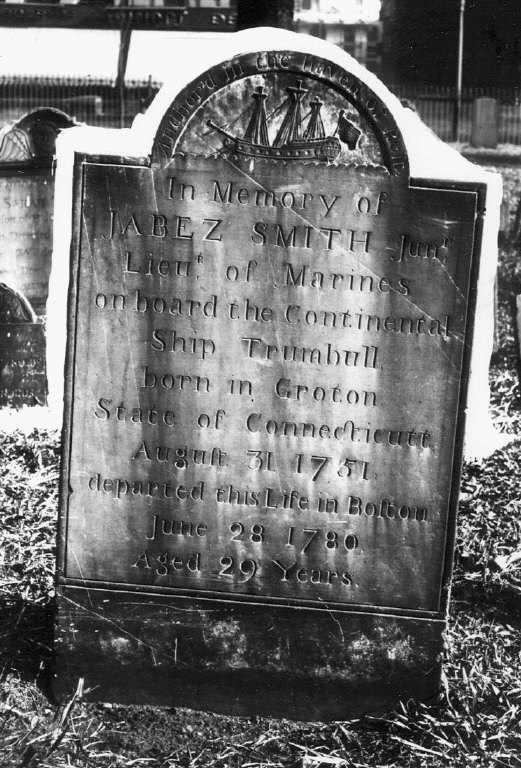 Anchor'd in the haven of Rest
In Memory of
JABEZ SMITH Junʳ
Lieuᵗ of Marines
on board the Continental
Ship Trumbull,
born in Groton
State of Connecticutt,
Auguſt 31, 1751,
departed this Life in Boſton
June 28 1780.
Aged 29 Years.